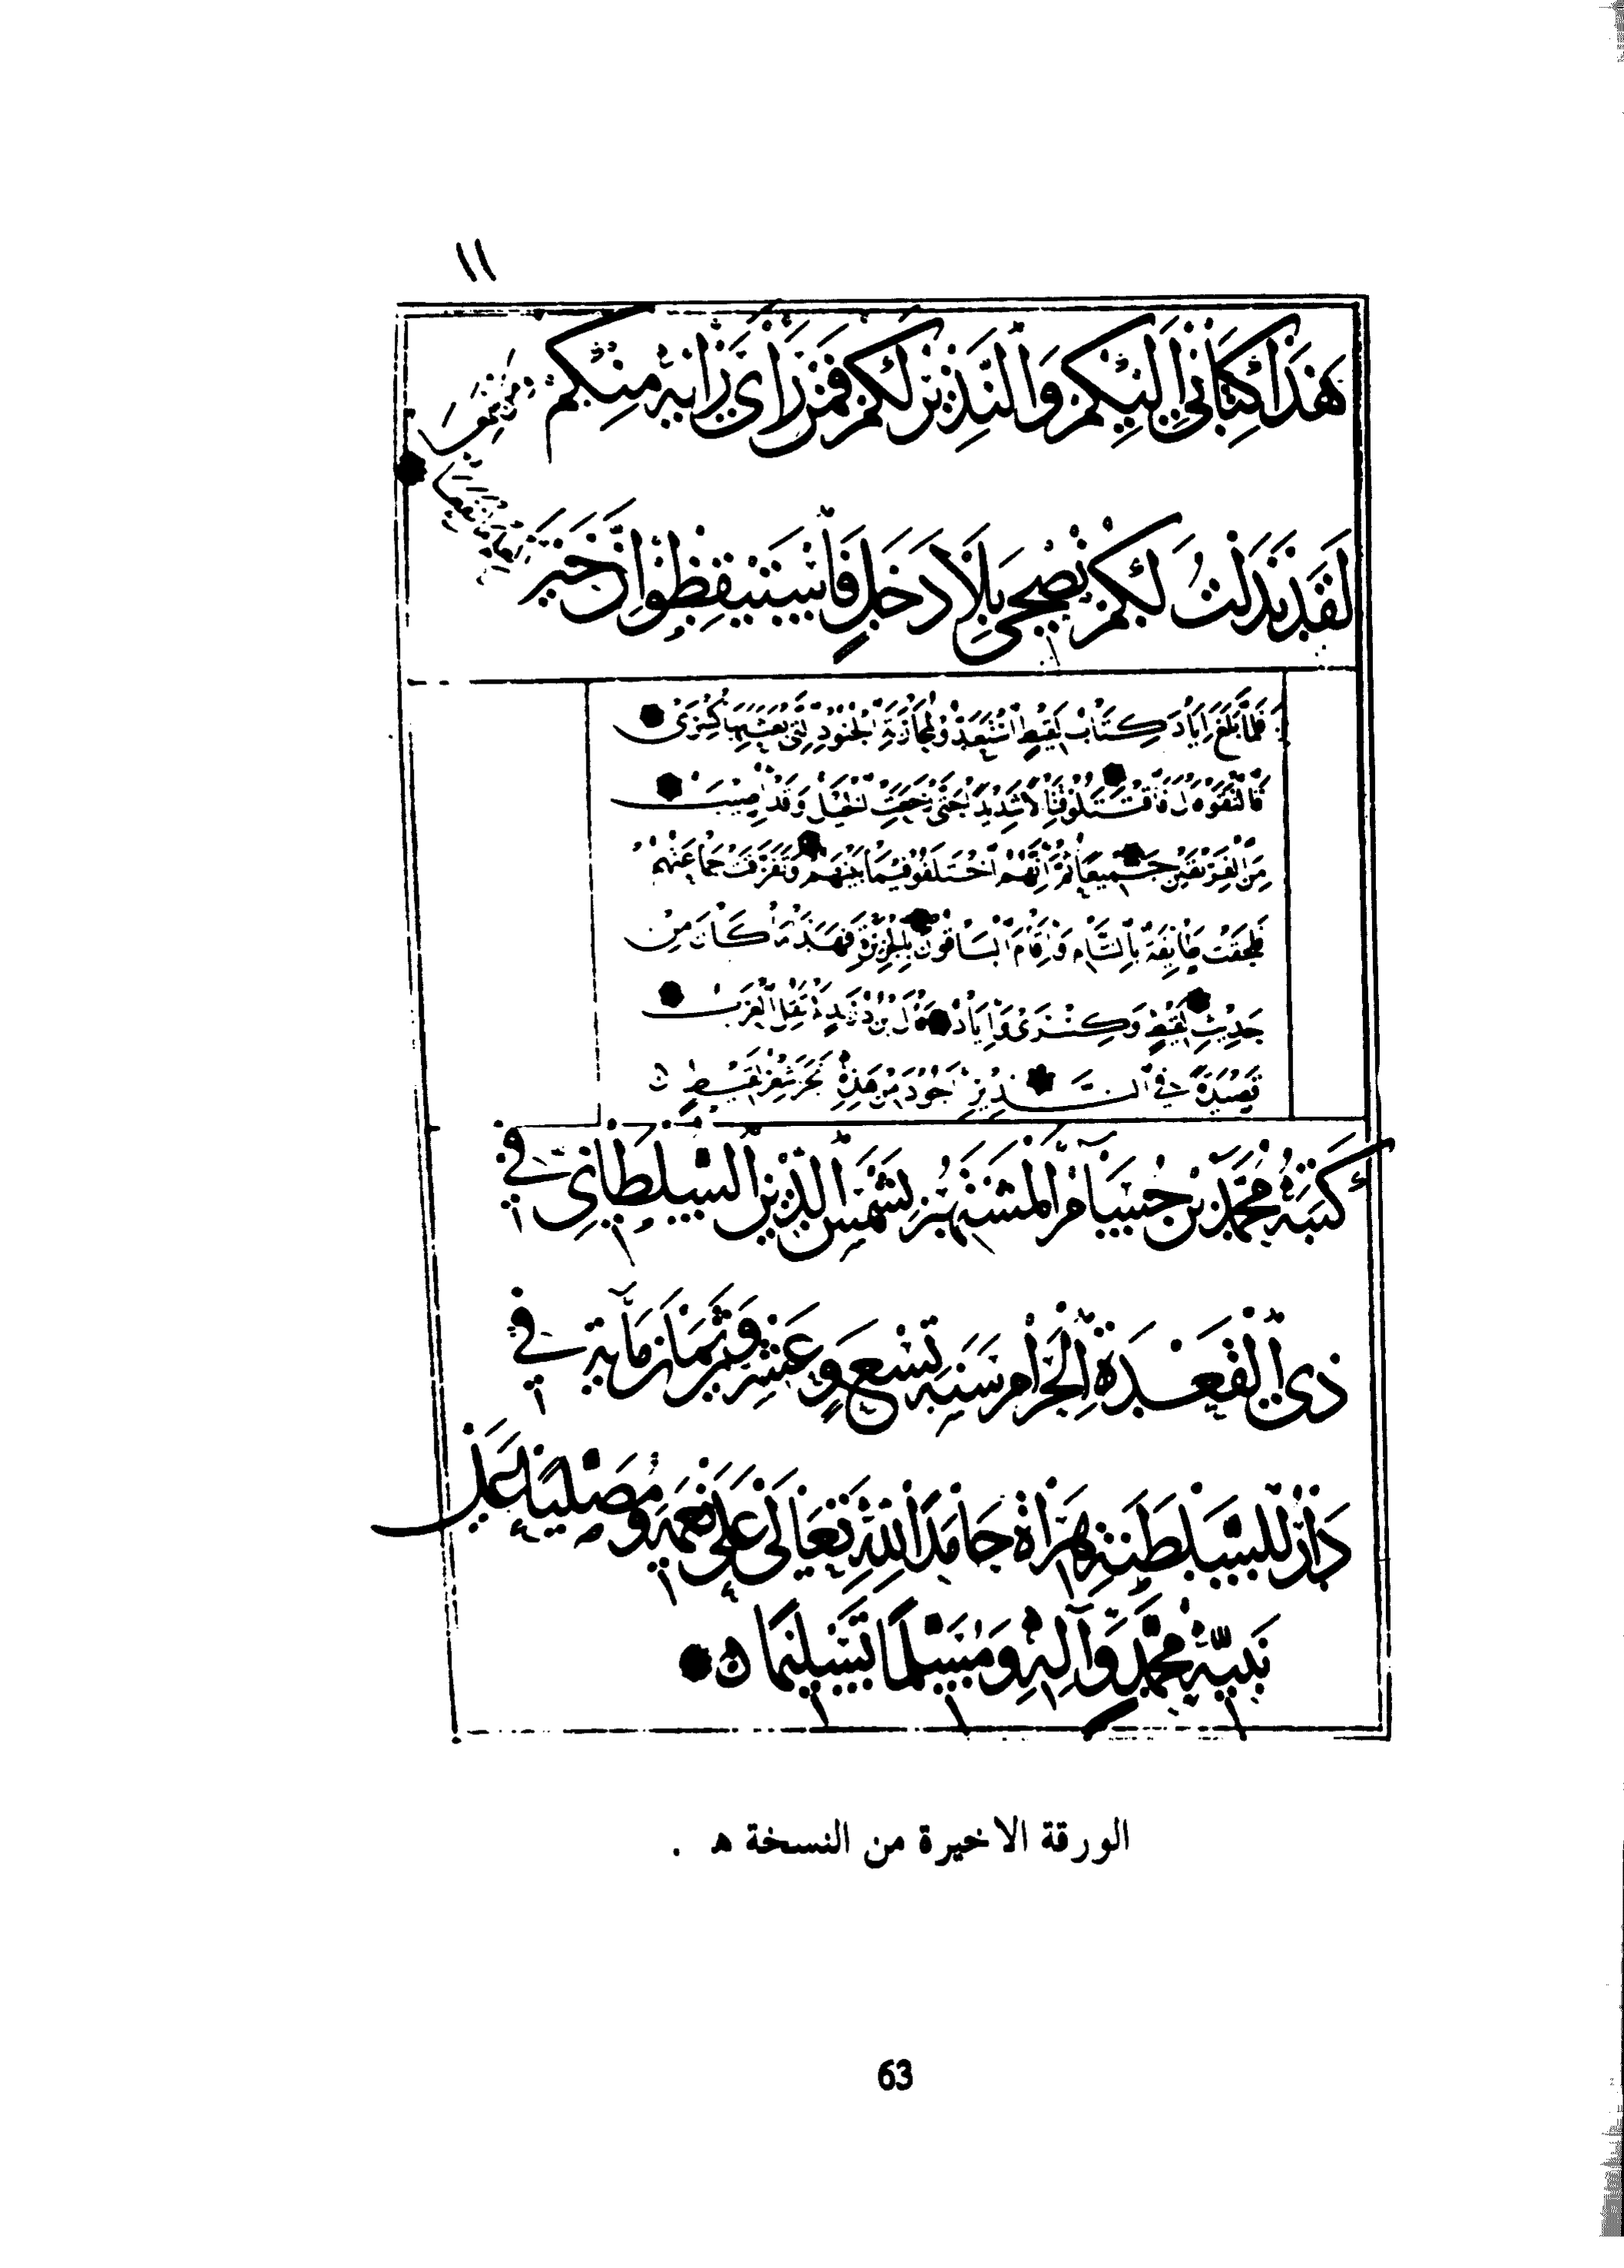 ١١
هَذَا كِتَابِي إِلَيْكُمْ وَالنَّذِيرُ لَكُمْ فَمَنْ رَأَى رَأْيَهُ مِنْكُمْ وَمَنْ سَمِعَا
لَقَدْ بَذَلْتُ لَكُمْ نُصْحِي بِلَا دَخَلٍ فَاسْتَيْقِظُوا إِنَّ خَيْرَ الْعِلْمِ مَا نَفَعَا
فَلَمَّا بَلَغَ إِيَادَ كِتَابُ لَقِيطٍ اسْتَعَدُّوا لِمُحَارَبَةِ الْجُنُودِ الَّتِي بَعَثَ بِهَا كِسْرَى
فَالْتَقَوْا فَاقْتَتَلُوا قِتَالًا شَدِيدًا حَتَّى رَجَعَتِ الْخَيْلُ وَقَدْ أُصِيبَ
مِنَ الْفَرِيقَيْنِ جَمِيعًا ثُمَّ إِنَّهُمْ اخْتَلَفُوا فِيمَا بَيْنَهُمْ وَتَفَرَّقَتْ جَمَاعَتُهُمْ
فَلَحِقَتْ طَائِفَةٌ بِالشَّامِ وَأَقَامَ الْبَاقُونَ بِالْجَزِيرَةِ فَهَذَا مَا كَانَ مِنْ
حَدِيثِ لَقِيطٍ وَكِسْرَى وَإِيَادٍ الْعَرَبُ
قَصِيدَةً فِي النَّذِيرِ أَجْوَدَ مِنْ هَذِهِ شِعْرُ لَقِيطٍ
كَتَبَهُ مُحَمَّدُ بْنُ حُسَامٍ الْمُشْتَهِرُ بِشَمْسِ الدِّينِ السُّلْطَانِي فِي
ذِي الْقَعْدَةِ الْحَرَامِ سَنَةِ تِسْعَ وَعَشَرَ وَثَمَانِمِائَةٍ فِي
دَارِ السَّلْطَنَةِ هَرَاةَ حَامِدًا لِلَّهِ تَعَالَى عَلَى نِعَمِهِ وَمُصَلِّيًا عَلَى
نَبِيِّهِ مُحَمَّدٍ وَآلِهِ وَمُسَلِّمًا تَسْلِيمًا
الورقة الاخيرة من النسخة ه .
63